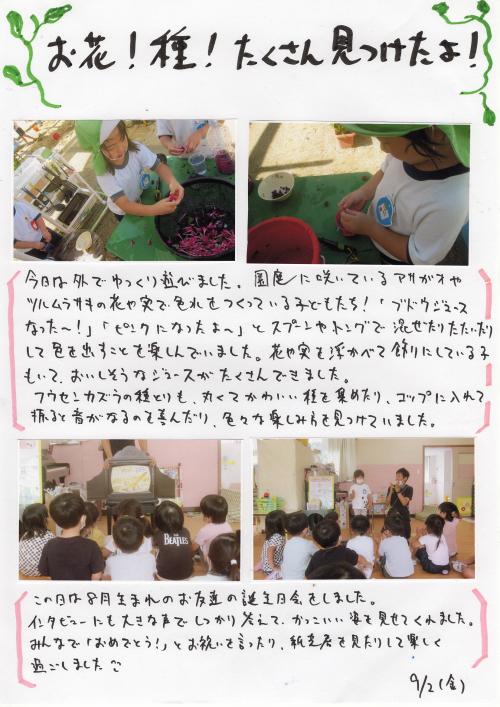 お花！種！たくさん見つけたよ！
今日は外でゆっくり遊びました。園庭に咲いているアサガオや
ツルムラサキの花や実で色水をつくっている子どもたち！「ブドウジュース
なった〜！」「ピンクになったよ〜」とスプーンやトングで混ぜたりたたいたり
して色を出すことを楽しんでいました。花や実を浮かべて飾りにしている子
もいて、おいしそうなジュースがたくさんできました。
フウセンカズラの種とりも、丸くてかわいい種を集めたり、コップに入れて
振ると音がなるのを喜んだり、色々な楽しみ方を見つけていました。
THE BEATLES
この日は8月生まれのお友達の誕生日会をしました。
インタビューにも大きな声でしっかり答えて、かっこいい姿を見せてくれました。
みんなで「おめでとう！」とお祝いを言ったり、紙芝居を見たりして楽しく
過ごしました
9/2(金)